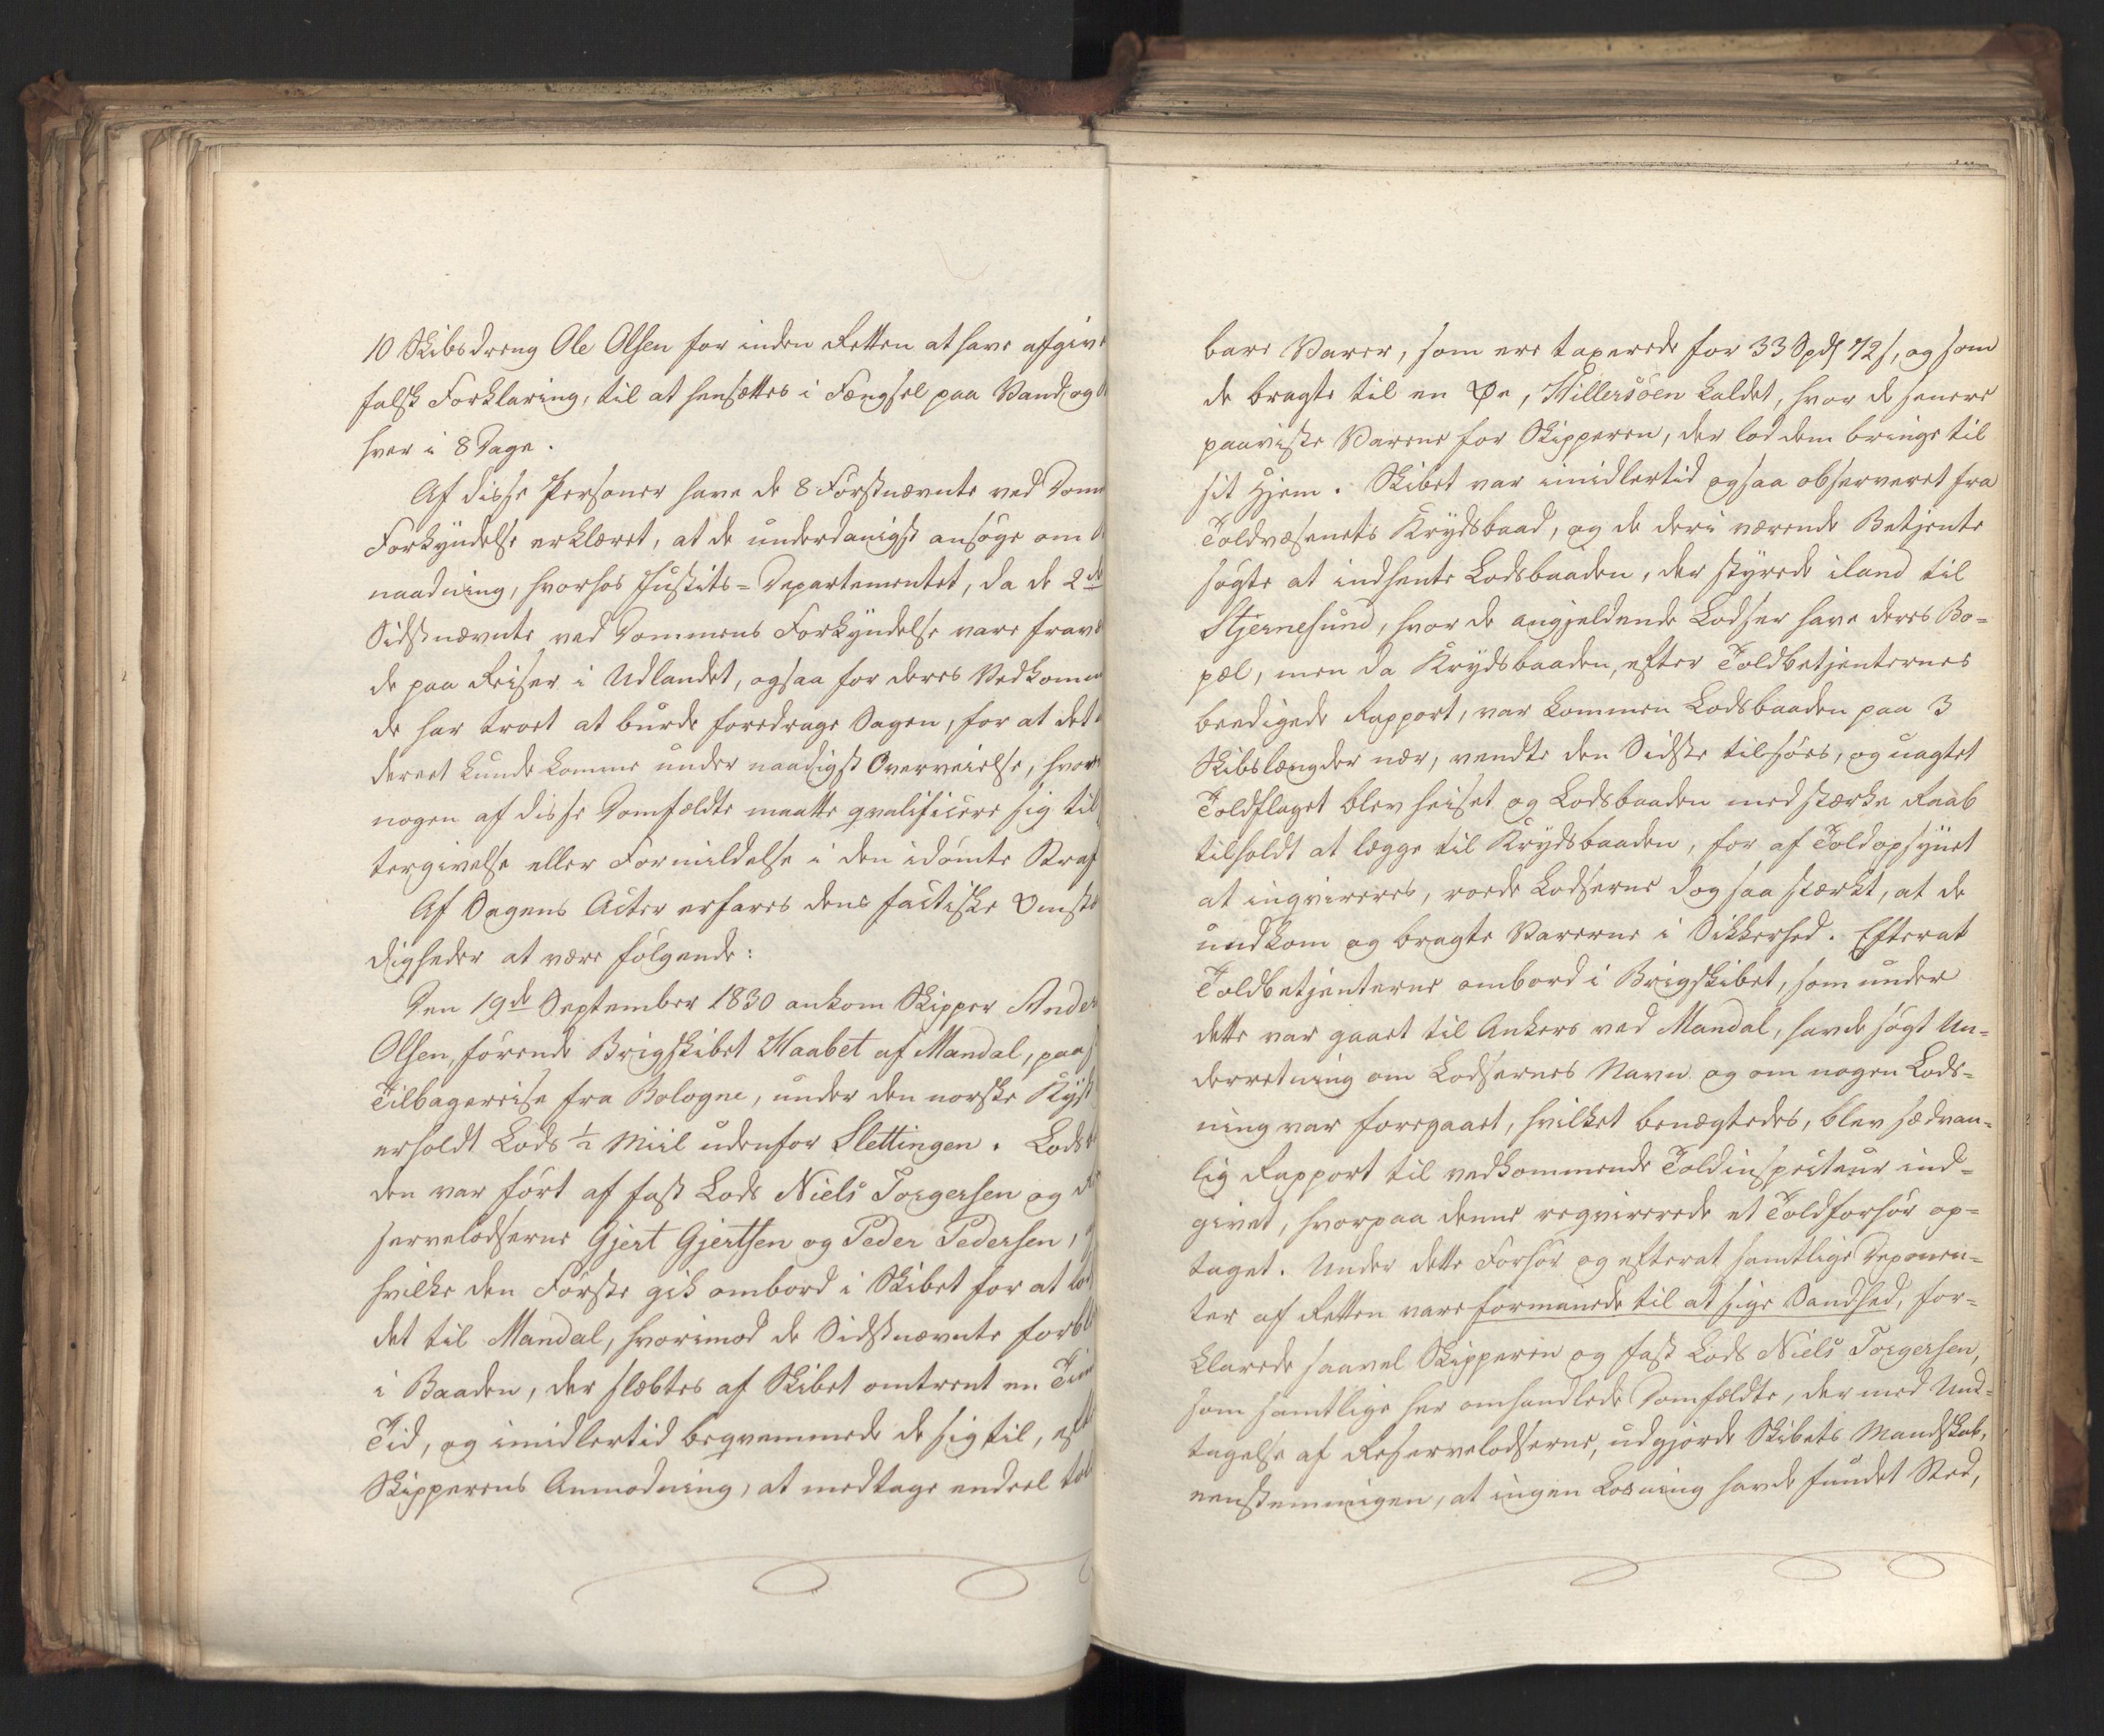 10 Skibsdreng Ole Olsen for inden Retten at have afgiv
falsk Forklaring, til at hensættes i Fængsel paa Vand og
hver i 8 Dage.
Af disse Personer have de 8 Førstnævnte ved Dom
Forkyndelse erklæret, at de underdanigst ansøge om
naadning, hvorhos Justits-Departementet, da de 2de
Sidstnævnte ved Dommens Forkyndelse vare fravæ
de paa Reiser i Udlandet, ogsaa for deres Vedkomm
de har troet at burde foredrage Sagen, for at det
derved kunde komme under naadigst Overveielse, hvor
nogen af disse Domfældte maatte qvalificere sig til
tergivelse eller Formildelse i den idømte Straf
Af Sagens Acter erfares dens factiske Omstæ
digheder at være følgende:
Den 19de September 1830 ankom Skipper Ander
Olsen, førende Brigskibet Haabet af Mandal, paa
Tilbagereise fra Bologne, under den norske Kyst
erholdt Lods ½ Miil udenfor Slettingen. Lods
den var ført af fast Lods Niels Torgersen og
servelodserne Gjert Gjertsen og Peder Pedersen,
hvilke den Første gik ombord i Skibet for at lod
det til Mandal, hvorimod de Sidstnævnte forbl
i Baaden, der slæbtes af Skibet omtrent en Tim
Tid, og imidlertid beqvemmede de sig til, eft
Skipperens Anmodning, at medtage endeel tol
bare Varer, som ere taxerede for 33 Spd 72 s, og som
de bragte til en Øe, Hillersöen kaldet, hvor de senere
paaviste Varene for Skipperen, der lod dem bringe til
sit Hjem. Skibet var imidlertid ogsaa observeret fra
Toldvæsenets Krydsbaad, og de deri værende Betjente
søgte at indhente Lodsbaaden, der styrede iland til
Stjernesund, hvor de angjeldende Lodser have deres Bo=
pæl, men da Krydsbaaden, efter Toldbetjenternes
beedigede Rapport, var kommen Lodsbaaden paa 3
Skibslængder nær, vendte den Sidste tilsøes, og uagtet
Toldflaget blev heiset og Lodsbaaden med stærke Raab
tilholdt at lægge til Krydsbaaden, for af Toldopsynet
at inqvireres, roede Lodserne dog saa stærkt, at de
undkom og bragte Varerne i Sikkerhed. Efterat
Toldbetjenterne ombord i Brigskibet, som under
dette var gaaet til Ankers ved Mandal, havde søgt Un=
derretning om Lodsernes Navn og om nogen Lods=
ning var foregaaet, hvilket benægtedes, blev sædvan=
lig Rapport til vedkommende Toldinspecteur ind=
givet, hvorpaa denne reqvirerede et Toldforhør op=
taget. Under dette Forhør og efterat samtlige Deponen=
ter af Retten vare formanede til at sige Sandhed, for=
klarede saavel Skipperen og fast Lods Niels Torgersen,
som samtlige her omhandlede Domfældte, der med Und=
tagelse af Reservelodserne, udgjorde Skibets Mandskab,
eenstemmigen, at ingen Losning havde fundet Sted,